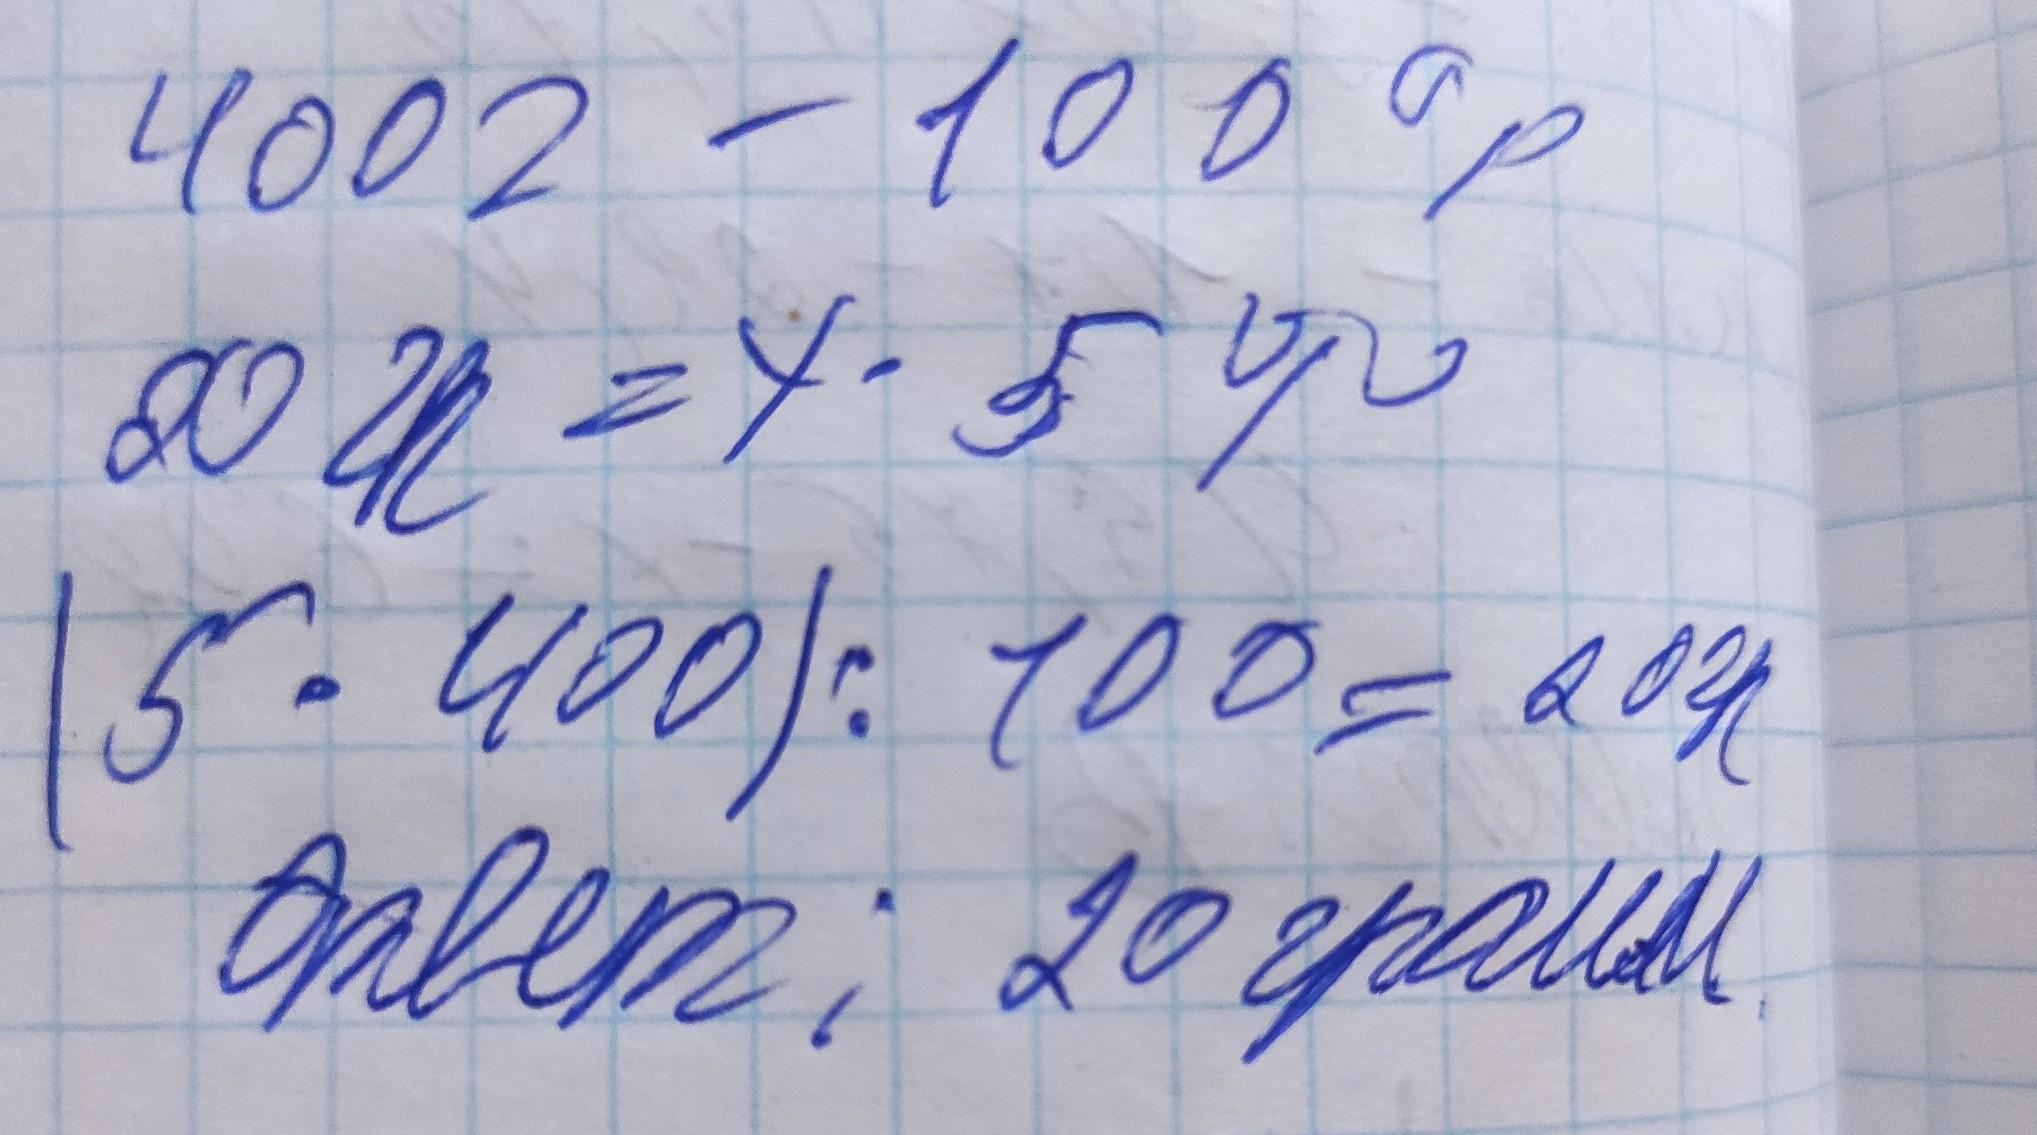 400г - 100 %
20 гр = х - 5 %
(5 · 400) : 100 = 20гр
Ответ: 20 грамм.